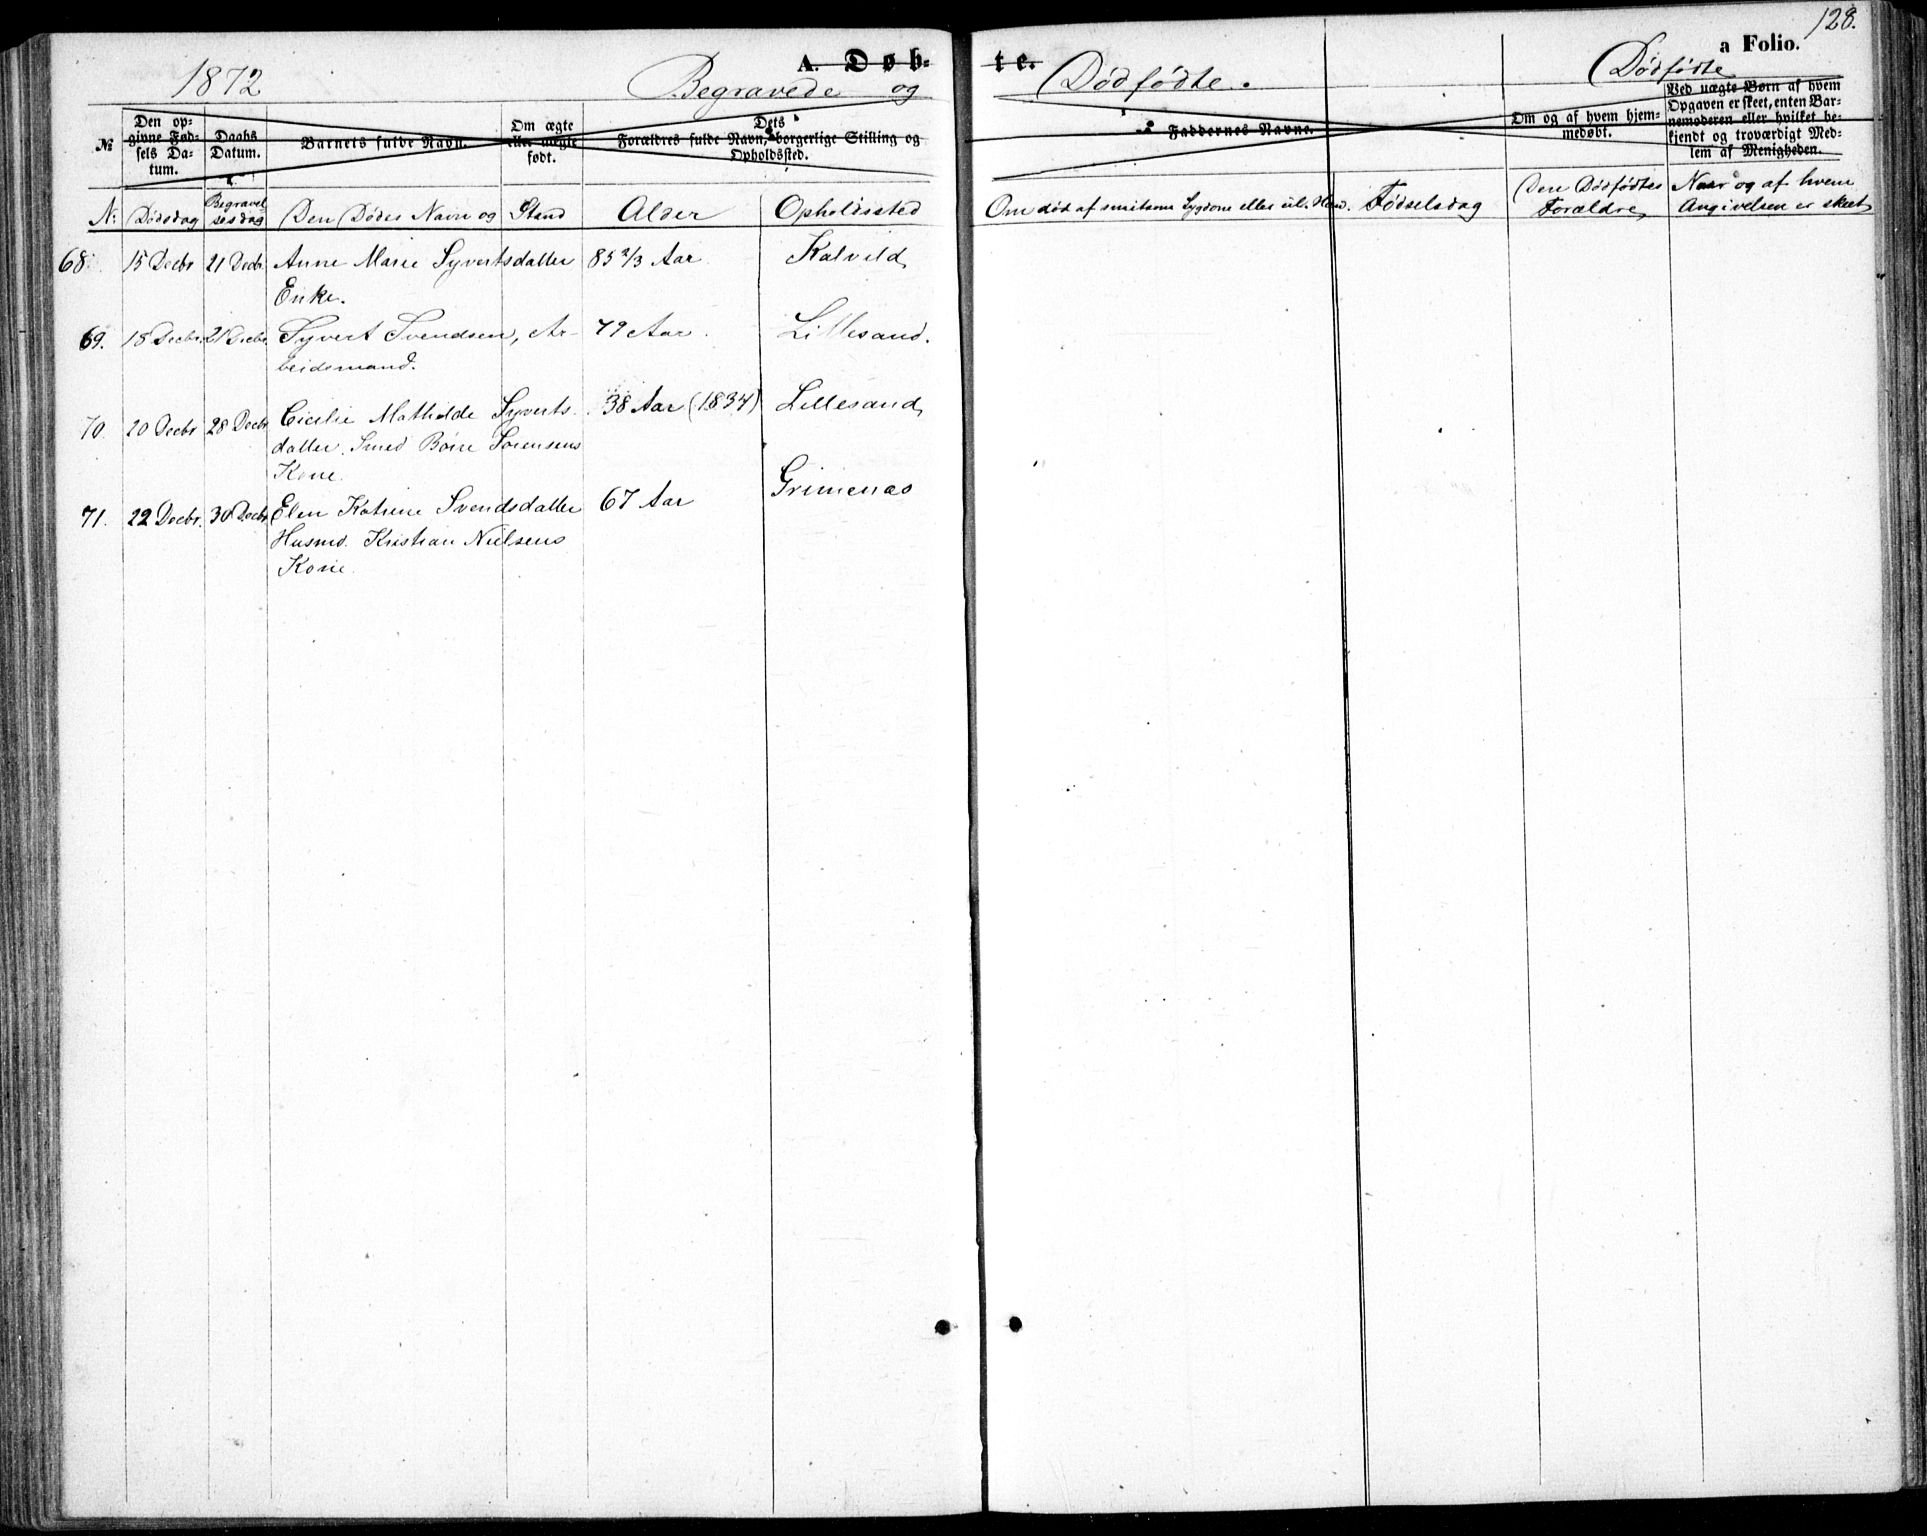 128.
1872
A. Døb-
te.
a Folio.
Begravede og
Dødfødte.
Dødfødte
№
Den op-
givne Fød-
sels Da-
tum.
Daabs
Datum.
Barnets fulde Navn.
Om ægte
eller uægte
født.
Dets
Forældres fulde Navn, borgerlige Stilling og
Opholdssted.
Faddernes Navne.
Om og af hvem hjem-
medøbt.
Ved uægte Børn af hvem
Opgaven er skeet, enten Bar-
nemoderen eller hvilket be-
kjendt og troværdigt Med-
lem af Menigheden.
N:
Dødsdag
Begravel
sesdag
Den Dødes Navn og Stand
Alder
Opholdssted
Om død af smitsom Sygdom eller ul. Hæn.
Fødselsdag
Den Dødfødtes
Forældre
Naar og af hvem
Angivelsen er skeet
68. 15 Decbr 21 Decbr. Anne Marie Syvertsdatter 85 2/3 Aar Kalvild
Enke.
69. 18 Decbr. 21 Decbr. Syvert Svendsen, Ar- 79 Aar. Lillesand.
beidsmand.
70. 20 Decbr 28 Decbr. Cicilie Mathilde Syverts- 38 Aar (1834) Lillesand
datter. Smed Børre Sørensens
Kone.
71. 22 Decbr. 30 Decbr. Elen Katrine Svendsdatter 67 Aar Grimenæs
Husmd. Kristian Nielsens
Kone.